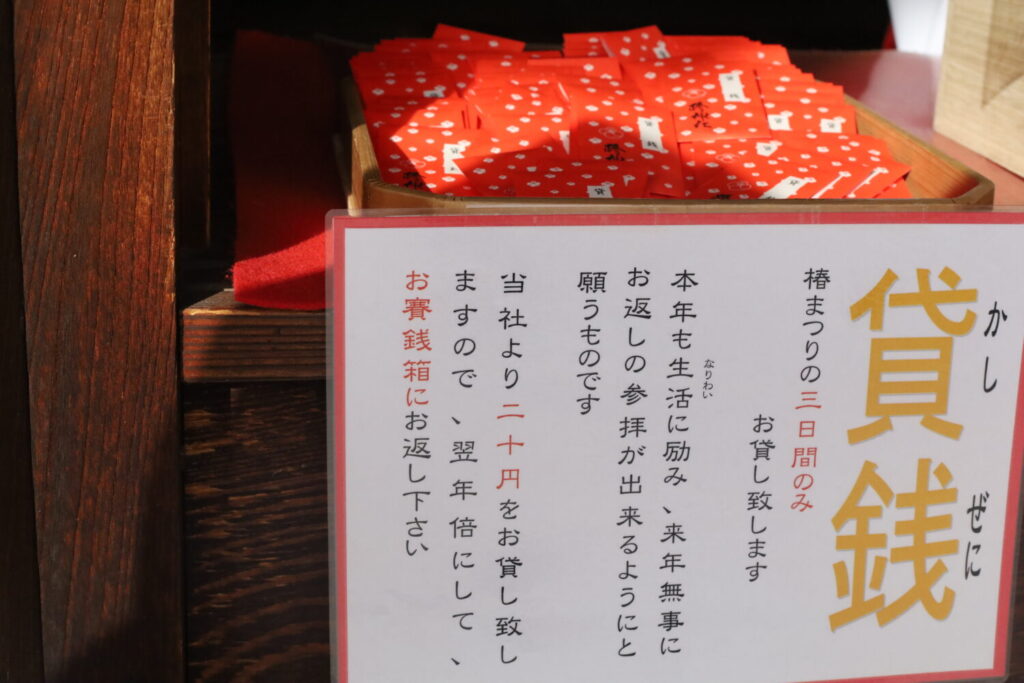 貸銭
かしぜに
椿まつりの三日間のみ
お貸し致します
本年も生活に励み、来年無事に
なりわい
お返しの参拝が出来るようにと
願うものです
当社より二十円をお貸し致し
ますので、翌年倍にして、
お賽銭箱にお返し下さい
貸銭